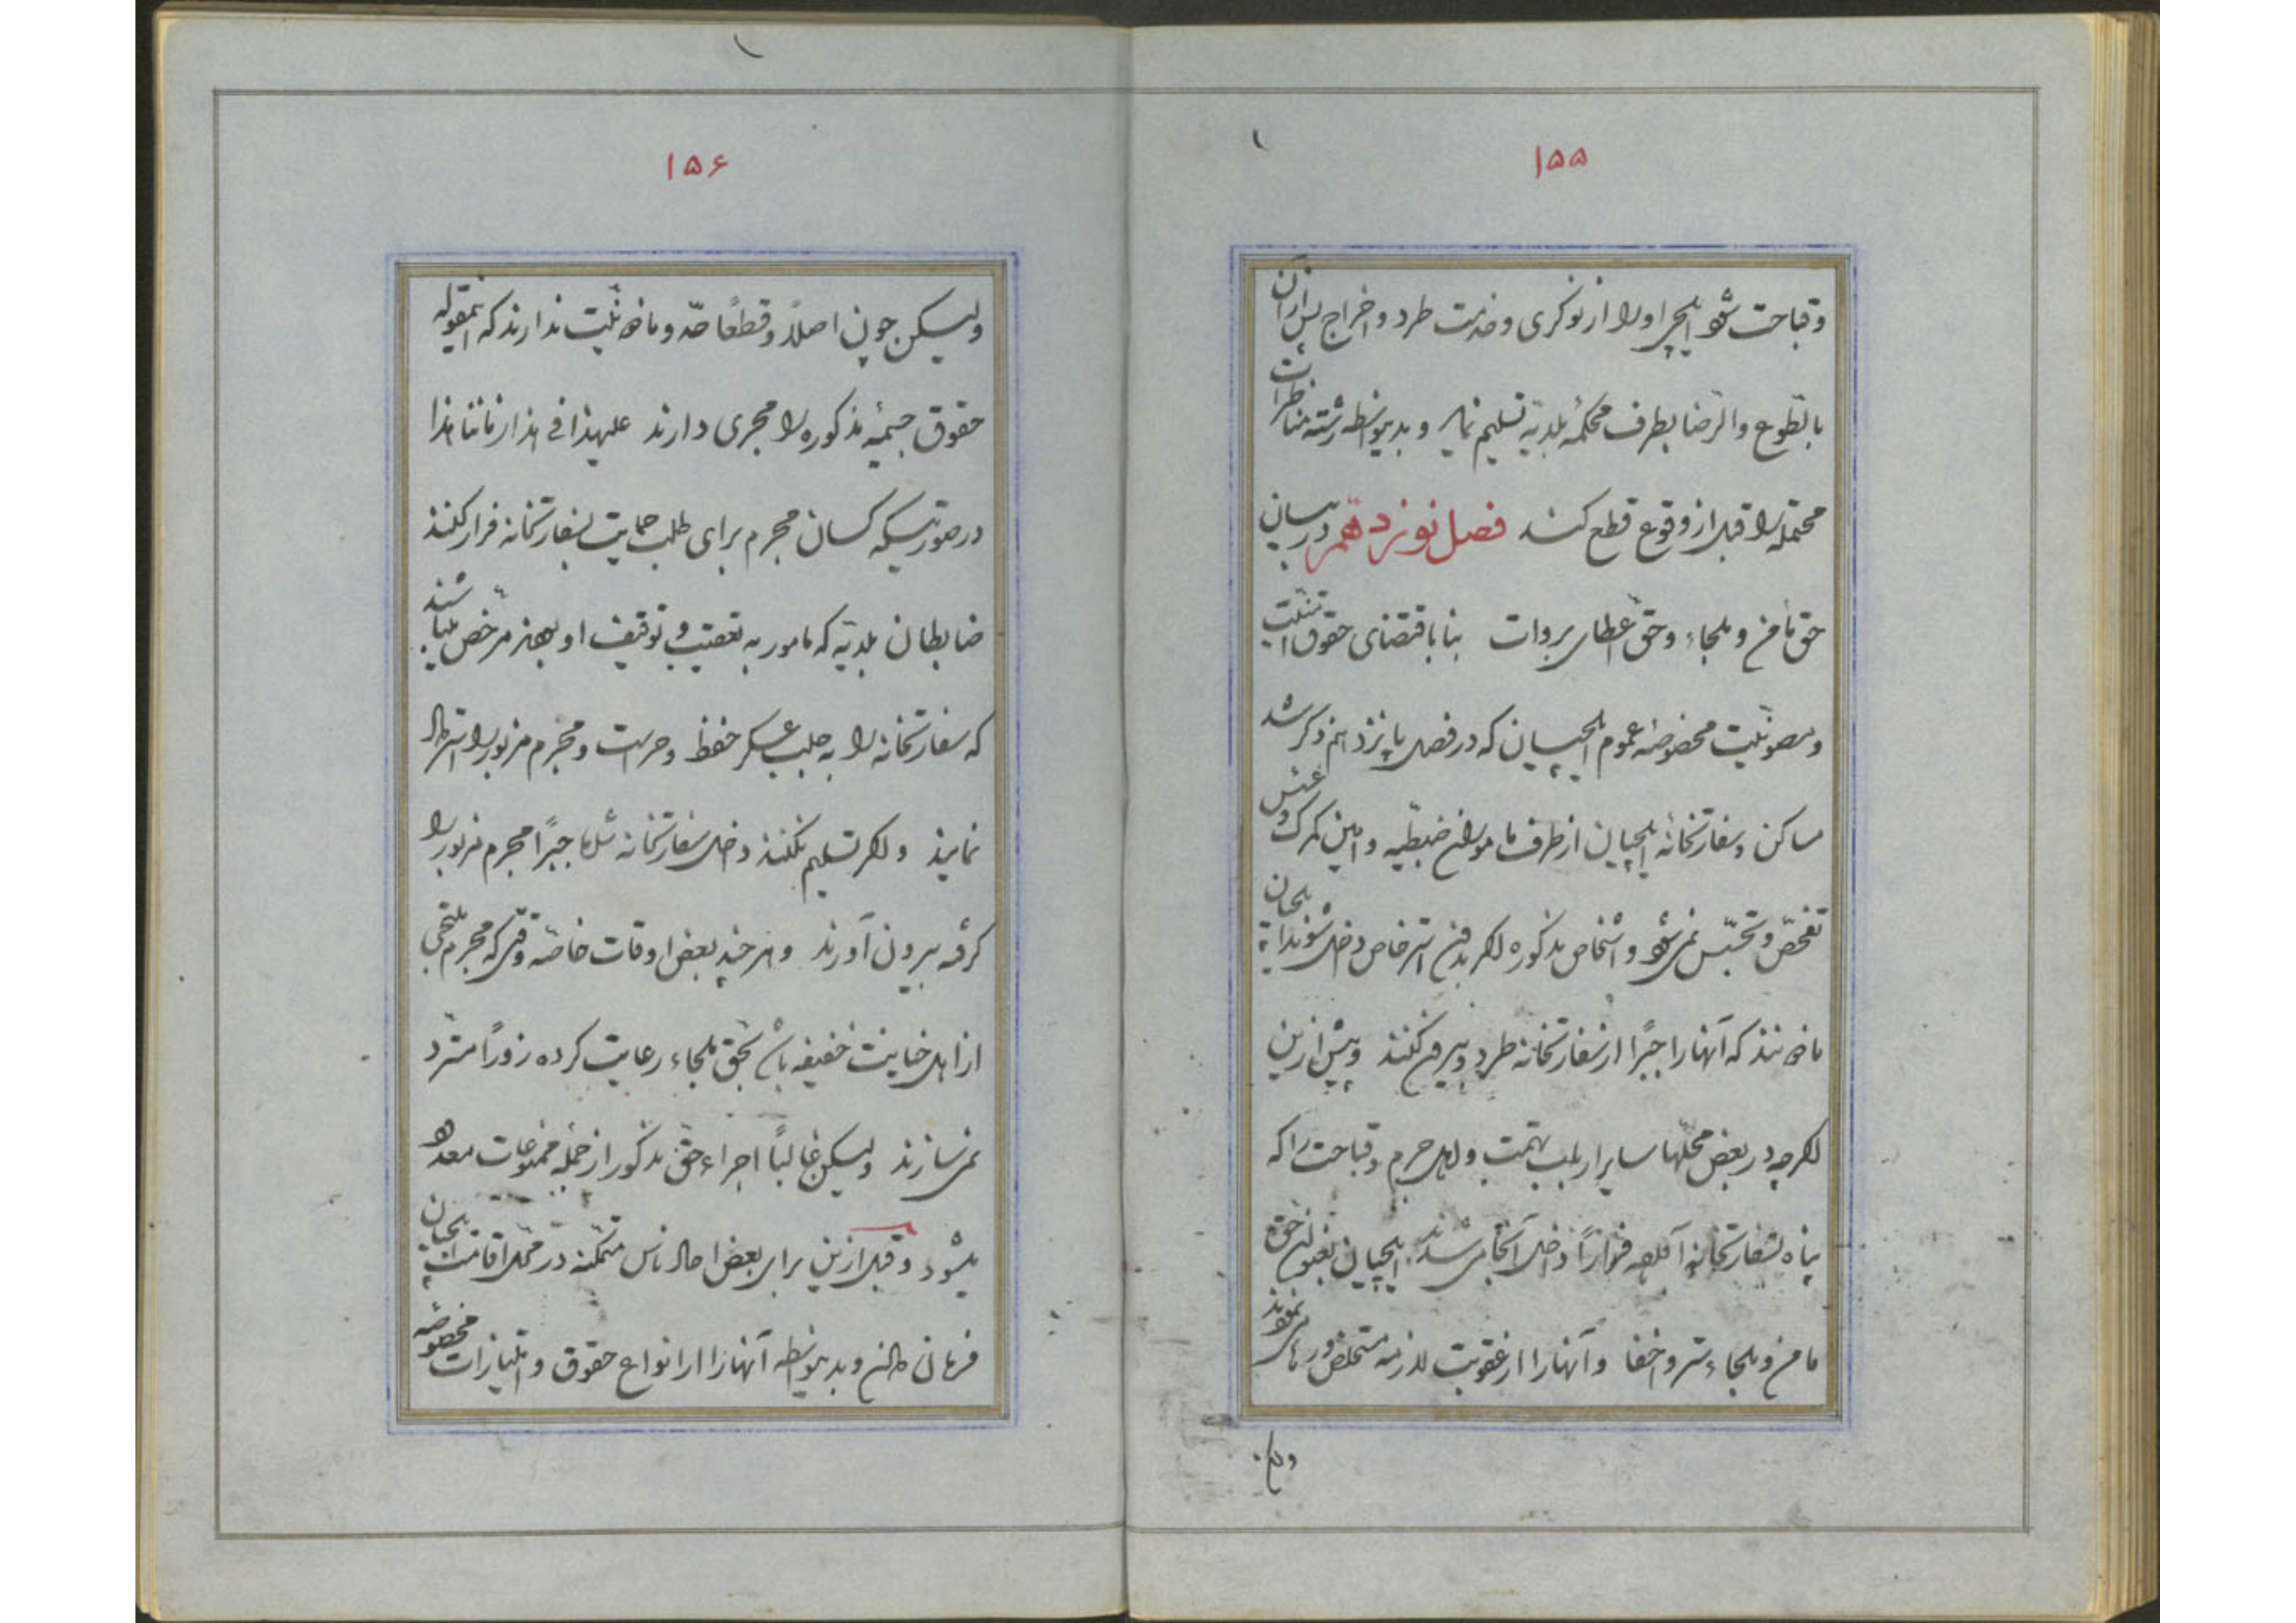 ۱۵۵
وقباحت شود ایلچی اورا از نوکری وخدمت طرد واخراج پس ازآن
بالطّوع والرّضا بطرف محکمهٔ بلدیّه تسلیم نماید وبدینواسطه رشتهٔ مناظرات
محتمله را قبل از وقوع قطع کند فصل نوزدهم دربیان
حق مأمن وملجاء وحقّ عطای بروات بنا باقتضای حقوق امنیّت
ومصونیّت مخصوصهٔ عموم ایلچیان که در فصل پانزدهم ذکر شد
مساکن وسفارتخانهٔ ایلچیان از طرف مامورین ضبطیّه وامین کمرک وعسس
تفحّص وتجسّس نمی‌شود واشخاص مذکوره اکر بدون استرخاص داخل شوند ایلچیان
ماذونند که آنهارا جبرًا از سفارتخانه طرد وبیرون کنند وپیش ازین
اکرچه در بعض محلّها سایر ارباب تهمت واهل جرم وقباحت را که
پناه بسفارتخانه آورده فرارًا داخل آنجا می‌شدند ایلچیان بعنوان حقّ
مامن وملجاء ستر واخفا وآنهارا از عقوبت لازمه متخلّص ورها می‌نمودند
ولی
۱۵۶
ولیکن چون اصلاً وقطعًا حدّ وماذونیّت ندارند که اینمقوله
حقوق جسیمهٔ مذکوره را مجری دارند علیهذا فی هذا زماننا هذا
درصورتیکه کسان مجرم برای طلب حمایت بسفارتخانه فرار کنند
ضابطان بلدیّه که مامور به تعقیب وتوقیف او بودند مرخّص میباشند
که سفارتخانه را به جلب عسکر حفظ وحراست ومجرم مزبور را استرداد
نمایند واکر تسلیم نکنند داخل سفارتخانه شده جبرًا مجرم مزبور را
کرفته بیرون آورند وهرچند بعض اوقات خاصّه وقتی که مجرم ملتجی
از اهل خیانت خفیفه باشد بحقّ ملجاء رعایت کرده زورًا مستردّ
نمی‌سازند ولیکن غالبًا اجراء حقّ مذکور از جمله ممنوعات معدوده
میشود وقبل ازین برای بعض احاد ناس متمکّنه در محلّ اقامت ایلچیان
فرمانی دادن وبدینواسطه آنهارا از انواع حقوق وامتیازات مخصوصه